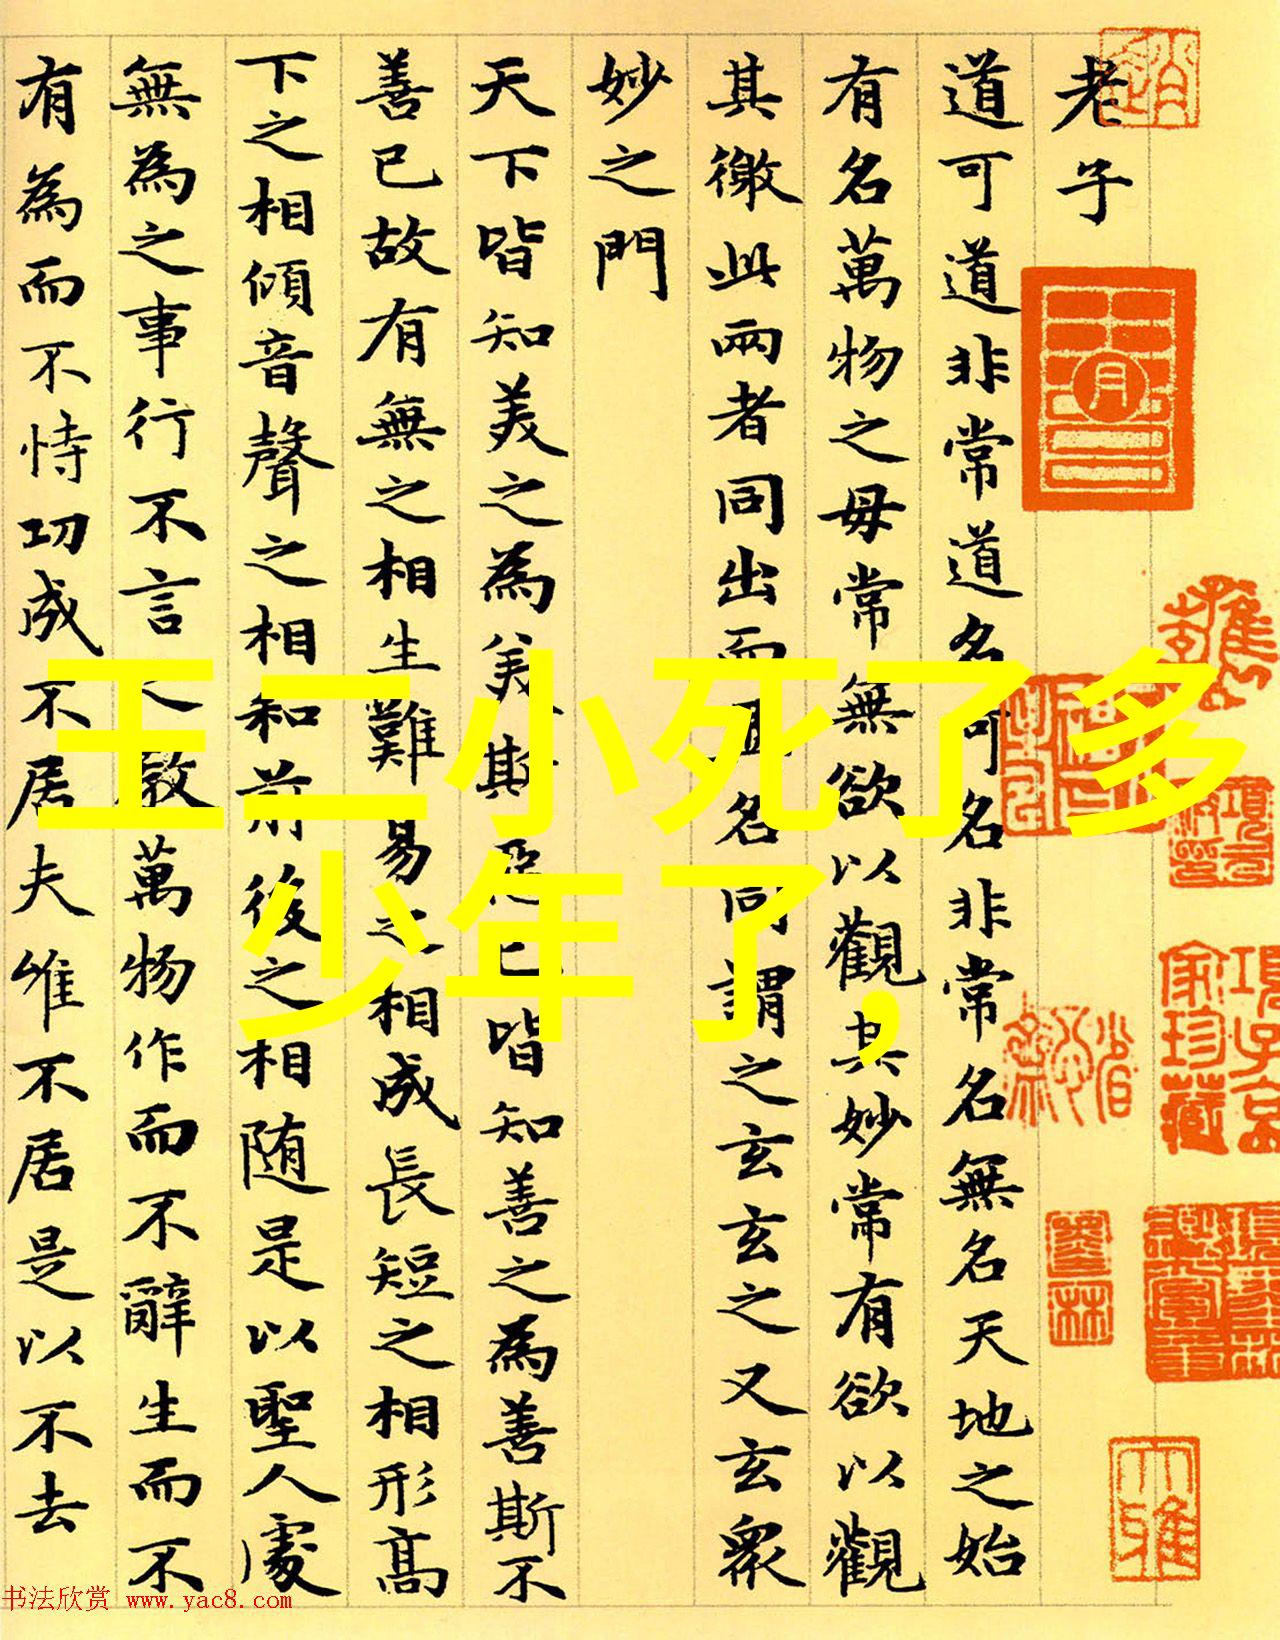 老子
道可道非常道名可名非常名無名天地之始
有名萬物之母常無欲以觀其妙常有欲以觀
其徼此兩者同出而異名同謂之玄玄之又玄衆
妙之門
天下皆知美之為美斯惡已皆知善之為善斯不
善已故有無之相生難易之相成長短之相形高
下之相傾音聲之相和前後之相随是以聖人處
無為之事行不言之教萬物作而不辭生而不
有為而不恃功成不居夫惟不居是以不去
王二小死了多
少年了,
項子京
家珍藏
书法欣赏 www.yac8.com